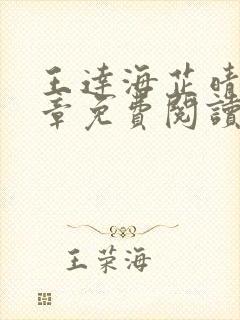 王逹海芷晴
章免費閱讀
王荣海